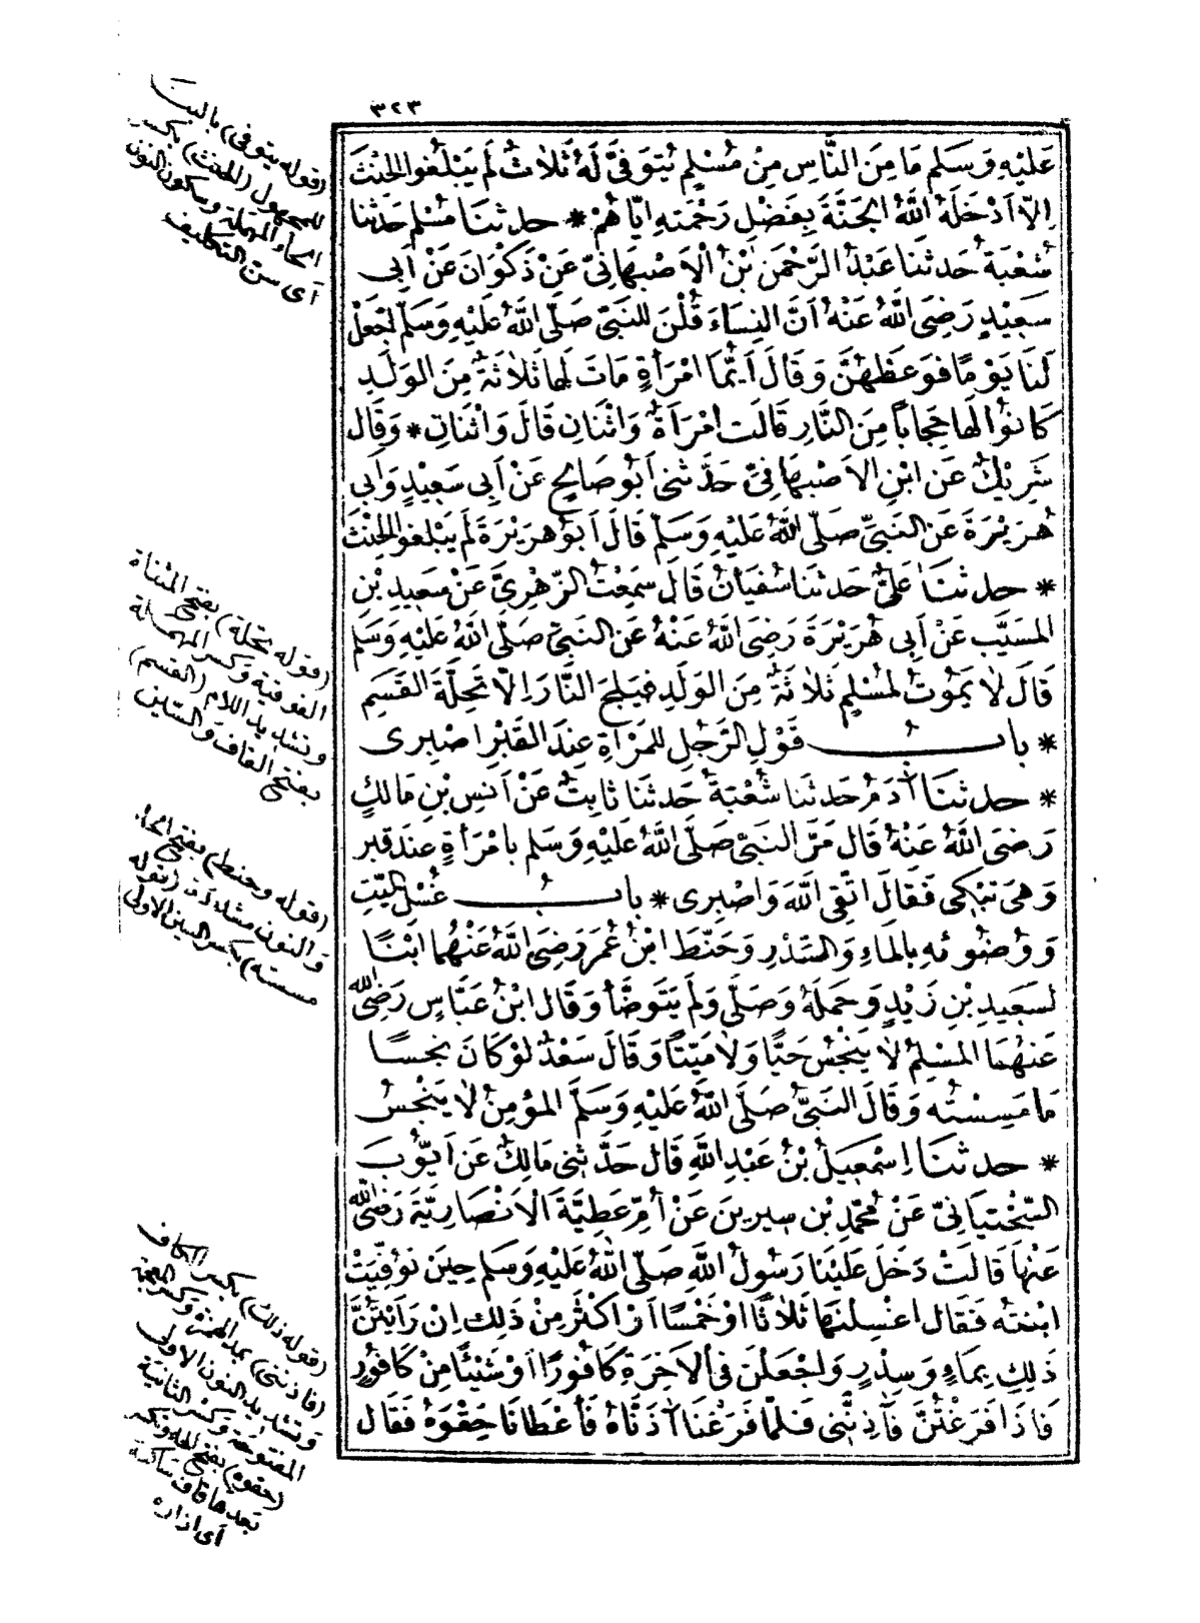 ٣٢٣
عَلَيْهِ وَسَلَّم مَا مِنَ النَّاسِ مِنْ مُسْلِمٍ يُتَوَفَّى لَهُ ثَلَاثٌ لَمْ يَبْلُغُوا الْحِنْثَ
اِلَّا اَدْخَلَهُ اللّٰهُ الْجَنَّةَ بِفَضْلِ رَحْمَتِهِ اِيَّاهُمْ * حدثنَا مُسْلِم حَدثنا
شُعْبَةُ حَدثنَا عَبْدُ الرَّحْمَنِ بْنُ الْاَصْبَهَانِىِّ عَنْ ذَكْوَانَ عَنْ اَبِى
سَعِيْدٍ رَضِىَ اللّٰهُ عَنْهُ اَنَّ النِسَاءَ قُلْنَ لِلنَّبِىِّ صَلَّى اللّٰهُ عَلَيْهِ وَسَلَّم اجْعَلْ
لَنَا يَوْمًا فوَعَظَهُنَّ وَقَالَ اَيُّمَا امْرَأَةٍ مَاتَ لَهَا ثَلَاثَةٌ مِنَ الْوَلَدِ
كَانُوْا لَهَا حِجَابًا مِنَ النَّارِ قَالَت امْرَأَةٌ وَاثْنَانِ قَالَ وَاثْنَانِ * وَقَال
شَرِيْكٌ عَن ابْنِ الاَصْبَهَانِىِّ حَدَّثنى اَبُو صَالِحٍ عَنْ اَبِى سَعِيْدٍ وَاَبِى
هُرَيْرَةَ عَن النَّبِىِّ صَلَّى اللّٰهُ عَلَيْهِ وَسَلَّم قَالَ اَبُوْ هُرَيْرَةَ لَمْ يَبْلُغُوا الْحِنْثَ
* حدثنَا عَلِىٌّ حَدثنَا سُفْيَانُ قَالَ سَمِعْتُ الزُّهْرِىَّ عَنْ سَعِيدِ بْنِ
المُسَيَّب عَنْ اَبِى هُرَيْرَةَ رَضِىَ اللّٰهُ عَنْهُ عَن النَّبِىِّ صَلَّى اللّٰهُ عَلَيْهِ وَسَلَّم
قَالَ لَا يَمُوْتُ لِمُسْلِمٍ ثَلَاثَةٌ مِنَ الوَلَدِ فيَلِجَ النَّارَ اِلَّا تَحِلَّةَ القَسَمِ
* بابُ قَوْلِ الرَّجُلِ لِلمَرْأَةِ عِنْدَ القَبْرِ اصْبِرِى
* حدثنَا آدَمُ حَدثنَا شُعْبَةُ حَدثنَا ثابِتٌ عَنْ اَنَسِ بْنِ مَالِكٍ
رَضِىَ اللّٰهُ عَنْهُ قَالَ مَرَّ النَّبِىُّ صَلَّى اللّٰهُ عَلَيْهِ وَسَلَّم بِامْرَأَةٍ عِنْدَ قَبْر
وَهِىَ تَبْكِى فَقَالَ اتَّقِى اللّٰهَ وَاصْبِرِى * بابُ غُسْلِ المَيِّتِ
وَوُضُوئهِ بِالمَاءِ وَالسِّدْرِ وَحَنَّطَ ابْنُ عُمَرَ رَضِىَ اللّٰهُ عَنْهُمَا ابْنًا
لِسَعِيدِ بْنِ زَيْدٍ وَحَمَلَهُ وَصَلَّى وَلَمْ يَتَوَضَّأْ وَقَالَ ابْنُ عَبَّاسٍ رَضِىَ اللّٰه
عَنهُمَا الْمُسْلِمُ لَا يَنْجُسُ حَيًّا وَلَا مَيِّتًا وَقَالَ سَعْدٌ لوْ كَانَ نَجِسًا
مَا مَسِسْتُه وَقَالَ النَّبِىُّ صَلَّى اللّٰهُ عَلَيْهِ وَسَلَّمَ المؤْمِنُ لَا يَنْجُسُ
* حدثنَا اِسْمَعِيلُ بْنُ عَبْدِ اللّٰهِ قَالَ حَدَّثَنِى مَالِكٌ عَن اَيُّوبَ
السَّخْتِيَانِىِّ عَنْ مُحَمَّدِ بْنِ سِيرِينَ عَنْ اُمِّ عَطِيَّةَ الاَنْصَارِيَّةَ رَضِىَ اللّٰه
عَنْهَا قَالَتْ دَخَلَ عَلَيْنَا رَسُولُ اللّٰهِ صَلَّى اللّٰهُ عَلَيْهِ وَسَلَّم حِيْنَ تُوُفِّيَتْ
ابْنَتُه فَقَال اغْسِلْنَهَا ثَلَاثًا اَوْ خَمْسًا اَوْ اَكْثَرَ مِنْ ذَلِك اِن رَاَيْتُنَّ
ذَلِكِ بِمَاءٍ وَسِدْرٍ وَاجْعَلْنَ فِى الاَخِرَةِ كَافُوْرًا اَوْ شَيْئًا مِنْ كَافُوْرٍ
فَاذَا فَرَغْتُنَّ فَآذِنَّنِى فَلَمَّا فَرَغْنَا آذَنَّاهُ فَأَعْطَانَا حِقْوَهُ فَقَالَ
(قوله يتوفى) بالبنا
للمجهول (الحنث) بكسر
الحاء المهملة وسكون النون
اى سن التكليف
(قوله تحلة) بفتح المثناة
الفوقية وكسر المهملة
وتشديد اللام (القسم)
بفتح القاف والسين
(قوله وحنط) بفتح الحاء
والنون مشددة (قوله
مسسته) بكسر السين الاولى
(قوله ذلك) بكسر الكاف
(فاذننى) بمد الهمزة وكسر المعجمة
وتشديد النون الاولى
المفتوحة وكسر الثانية
(حقوه) بفتح الحاء وتكسر
بعدها قاف ساكنة
اى ازاره